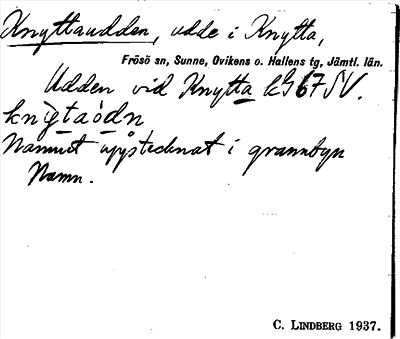 Knyttaudden, udde i Knytta,
Frösö sn, Sunne, Ovikens o. Hallens tg, Jämtl. län.
Udden vid Knytta kG67SV.
knỳtaòdn
Namnet uppstecknat i grannbyn
Namn.
C. LINDBERG 1937.